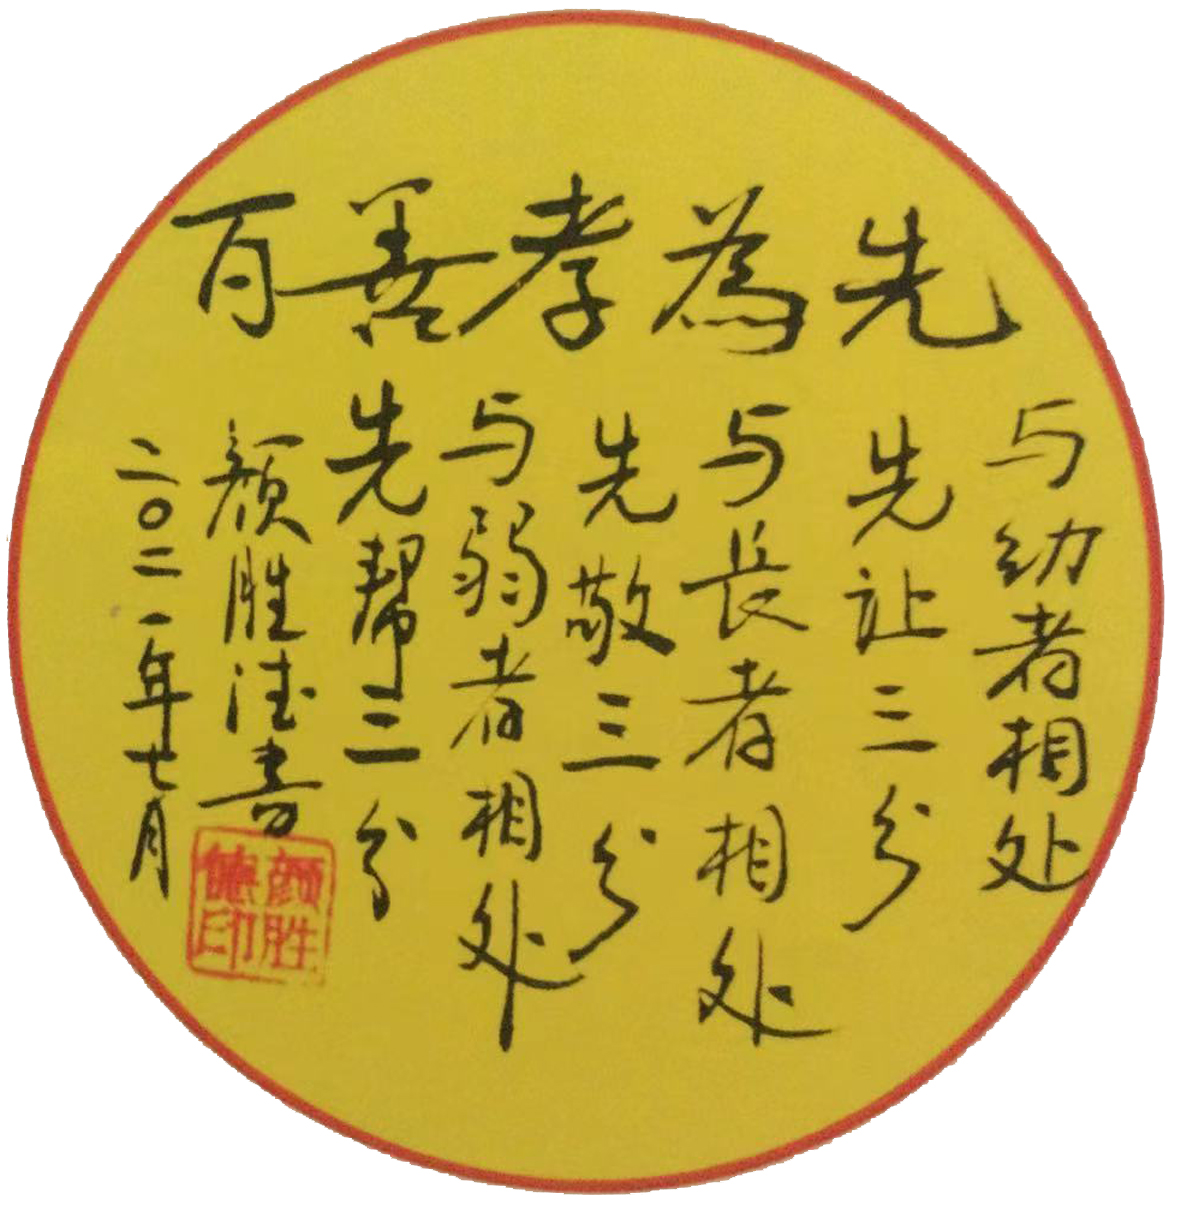 百善孝為先
与幼者相处
先让三分
与长者相处
先敬三分
与弱者相处
先帮三分
颜胜德书
二〇二一年七月
颜胜德印